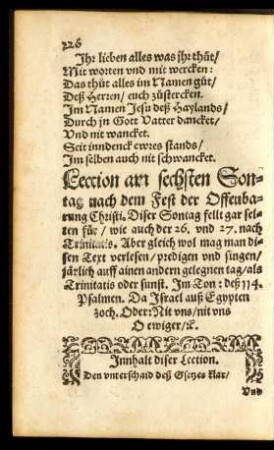 226
Jhr lieben alles was jhr thůt/
Mit worten vnd mit wercken:
Das thůt alles im Namen gůt/
Deß Herren/ euch zůstercken.
Im Namen Jesu deß Haylands/
Durch jn Gott Vatter dancket/
Vnd nit wancket.
Seit inndenck ewres stands/
Im selben auch nit schwancket.
Lection am sechsten Son-
tag nach dem Fest der Offenba-
rung Christi. Diser Sontag fellt gar sel-
ten für/ wie auch der 26. vnd 27. nach
Trinitatis. Aber gleich wol mag man di-
sen Text verlesen/ predigen vnd singen/
järlich auff ainen andern gelegnen tag/ als
Trinitatis oder sunst. Im Ton: deß 114.
Psalmen. Da Israel auß Egypten
zoch. Oder: Nit vns/ nit vns
O ewiger/ ꝛc.
Innhalt diser Lection.
Den vnterschaid deß Gsetzes klar/
Vnd